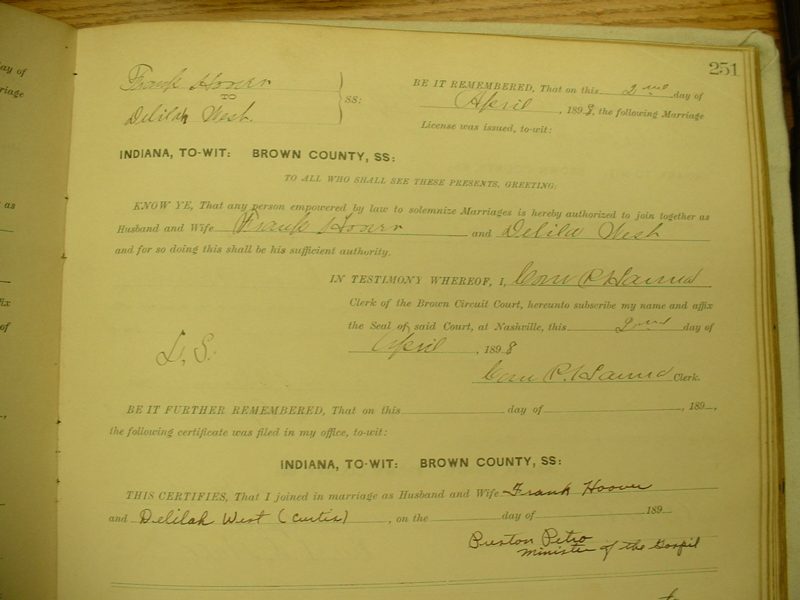 251
ay of
rriage
Frank Hoover
TO
Delilah West.
SS:
BE IT REMEMBERED, That on this 2nd day of
April, 1898, the following Marriage
License was issued, to-wit:
INDIANA, TO-WIT: BROWN COUNTY, SS:
TO ALL WHO SHALL SEE THESE PRESENTS, GREETING:
as
KNOW YE, That any person empowered by law to solemnize Marriages is hereby authorized to join together as
Husband and Wife Frank Hoover and Delila West
and for so doing this shall be his sufficient authority.
IN TESTIMONY WHEREOF, I,
ffix
Clerk of the Brown Circuit Court, hereunto subscribe my name and affix
of
the Seal of said Court, at Nashville, this 2nd day of
April, 1898
L. S.
Clerk.
BE IT FURTHER REMEMBERED, That on this day of , 189 ,
the following certificate was filed in my office, to-wit:
INDIANA, TO-WIT: BROWN COUNTY, SS:
THIS CERTIFIES, That I joined in marriage as Husband and Wife Frank Hoover
and Delilah West (Curtis), on the day of 189
Preston Petro
Minister of the Gospil